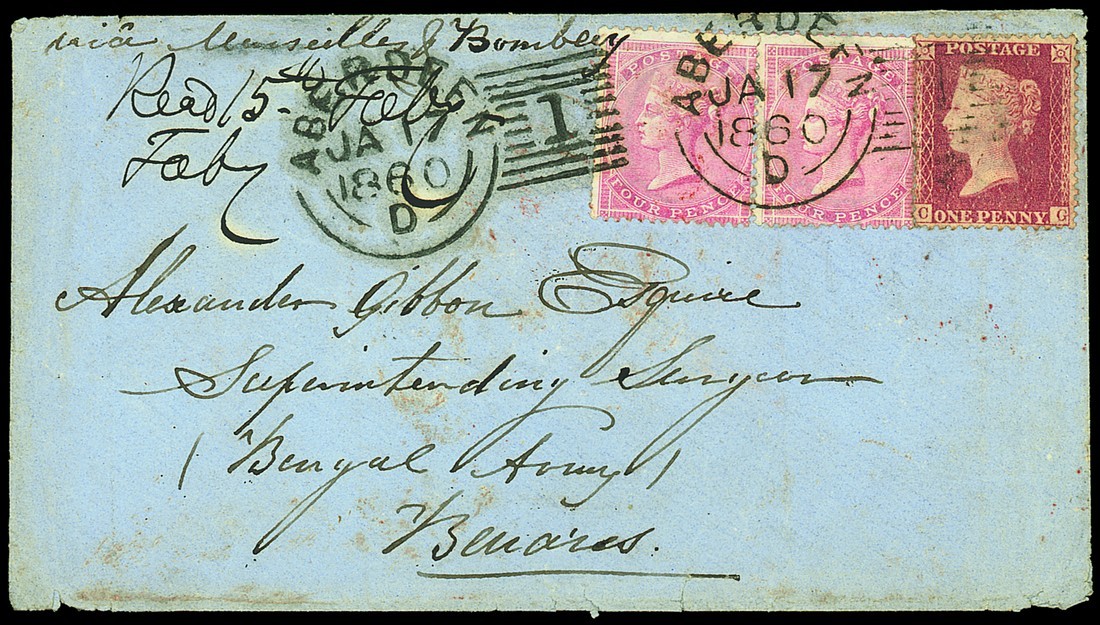 viâ Marseilles & Bombay
Recd 15th Feby
Feby
ABERDEEN
JA 17
1860
D
1
ABERDEEN
JA 17
1860
D
POSTAGE
FOUR PENCE
POSTAGE
FOUR PENCE
POSTAGE
C ONE PENNY G
Alexander Gibbon Esquire
Superintending Surgeon
(Bengal Army)
Benares.